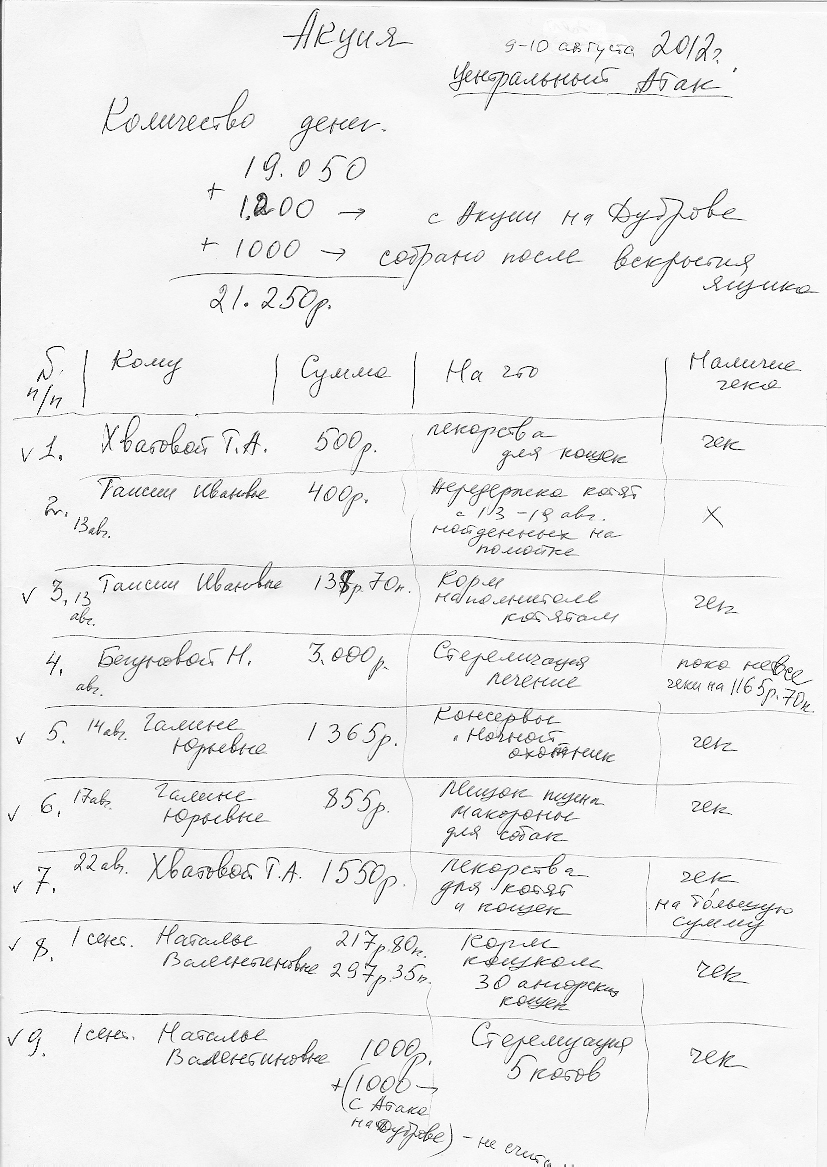 Акция
9-10 августа 2012г.
Центральный "Атак"
Количество денег.
19.050
+ 1.200 → с Акции на Дуброве
+ 1000 → собрано после вскрытия ящика
21.250р.
N п/п | Кому | Сумма | На что | Наличие чека
v 1. Хватовой Т.А. 500р. лекарства для кошек чек
2. 13 авг. Таисии Ивановне 400р. передержка котят с 13-19 авг. найденных на помойке X
v 3. 13 авг. Таисии Ивановне р.70к. корм наполнитель котятам чек
4. авг. Бегуновой Н. 3.000р. Стерилизация лечение пока не все чеки на 1165р.70к.
v 5. 14 авг. Галине Юрьевне 1365р. Консервы "Ночной охотник чек
v 6. 17 авг. Галине Юрьевне 855р. Мешок пшена макароны для собак чек
v 7. 22 авг. Хватовой Т.А. 1550р. лекарства для котят и кошек чек на бо́льшую сумму
v 8. 1 сент. Наталье Валентиновне 217р.80к. 297р.35к. Корм кошкам 30 ангорских кошек чек
v 9. 1 сент. Наталье Валентиновне 1000р. Стерилизация 5 котов чек
+ (1000 →
с Атака
на Дуброве) - не счита